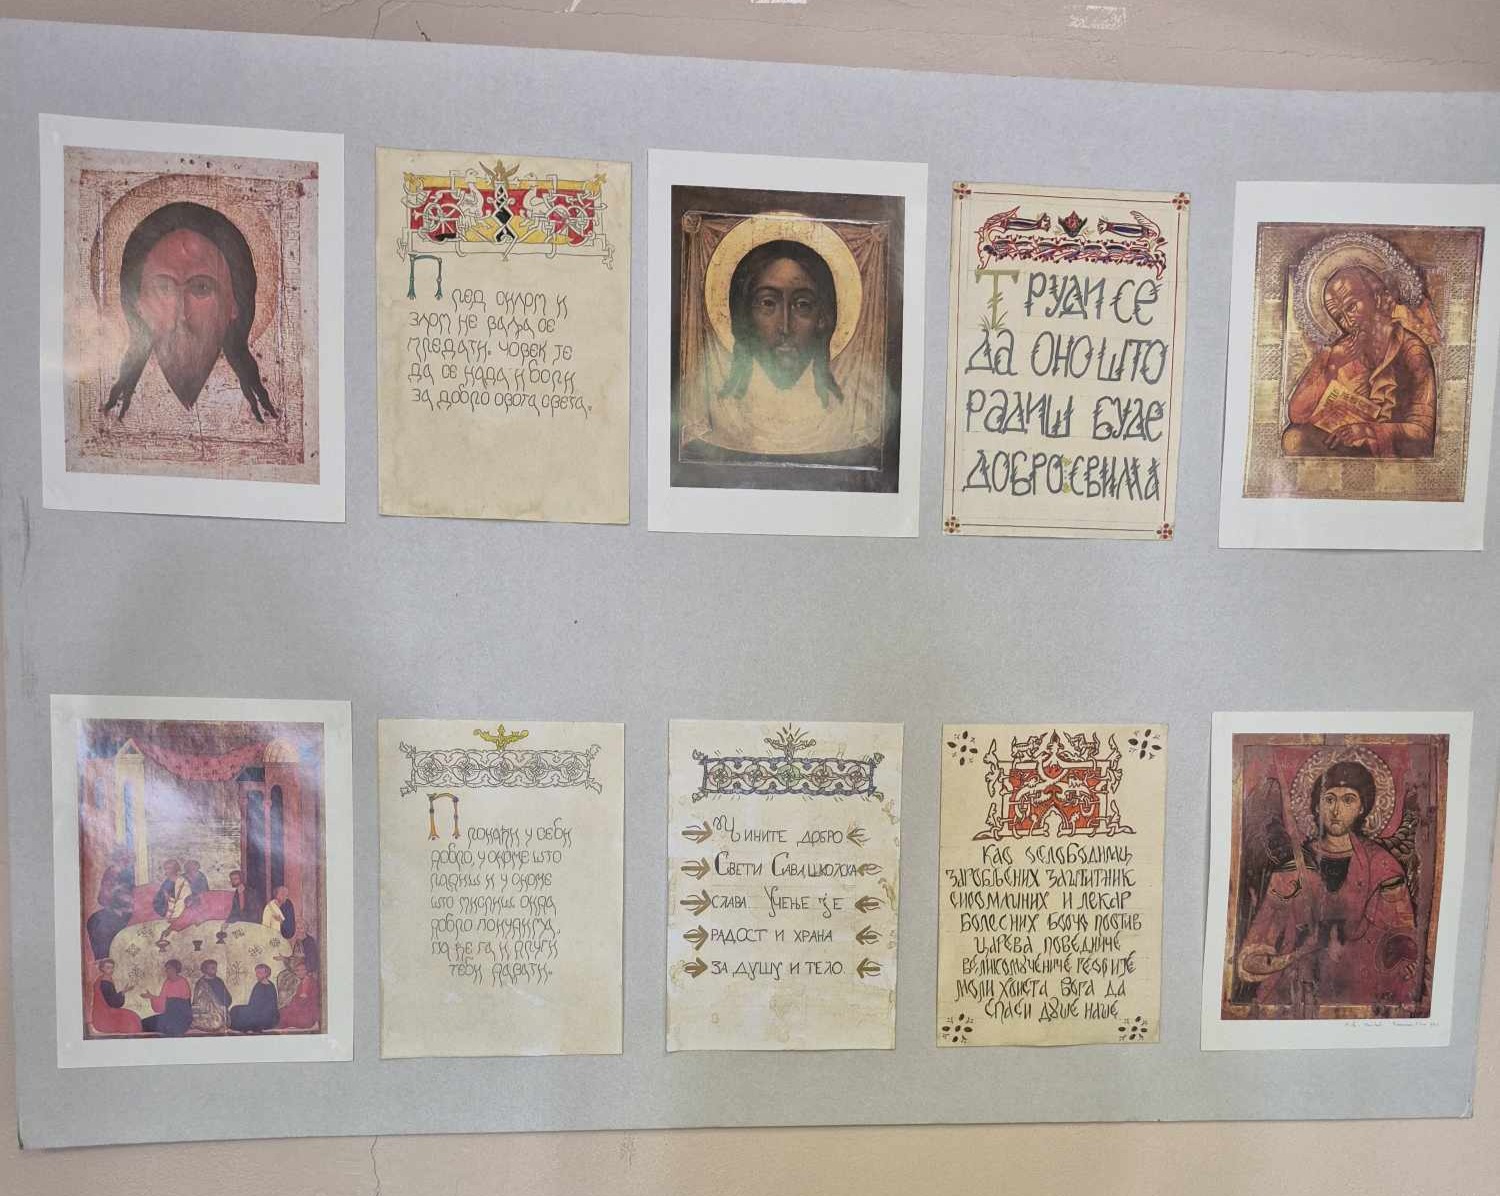 Пред силом и
злом не ваља се
предати. Човек је
да се нада и бори
за добро овога света.
Труди се
да оно што
радиш буде
добро свима
Пронађи у себи
добро, у ономе што
радиш и у ономе
што мислиш онда
добро понудима,
па ће га и други
теби давати.
Чините добро
Свети Сава школска
слава Учење је
радост и храна
за душу и тело.
Као ослободилац
заробљених заштитник
сиромашних и лекар
болесних борче против
царева победниче
великомучениче Георгије
моли Христа Бога да
спаси душе наше